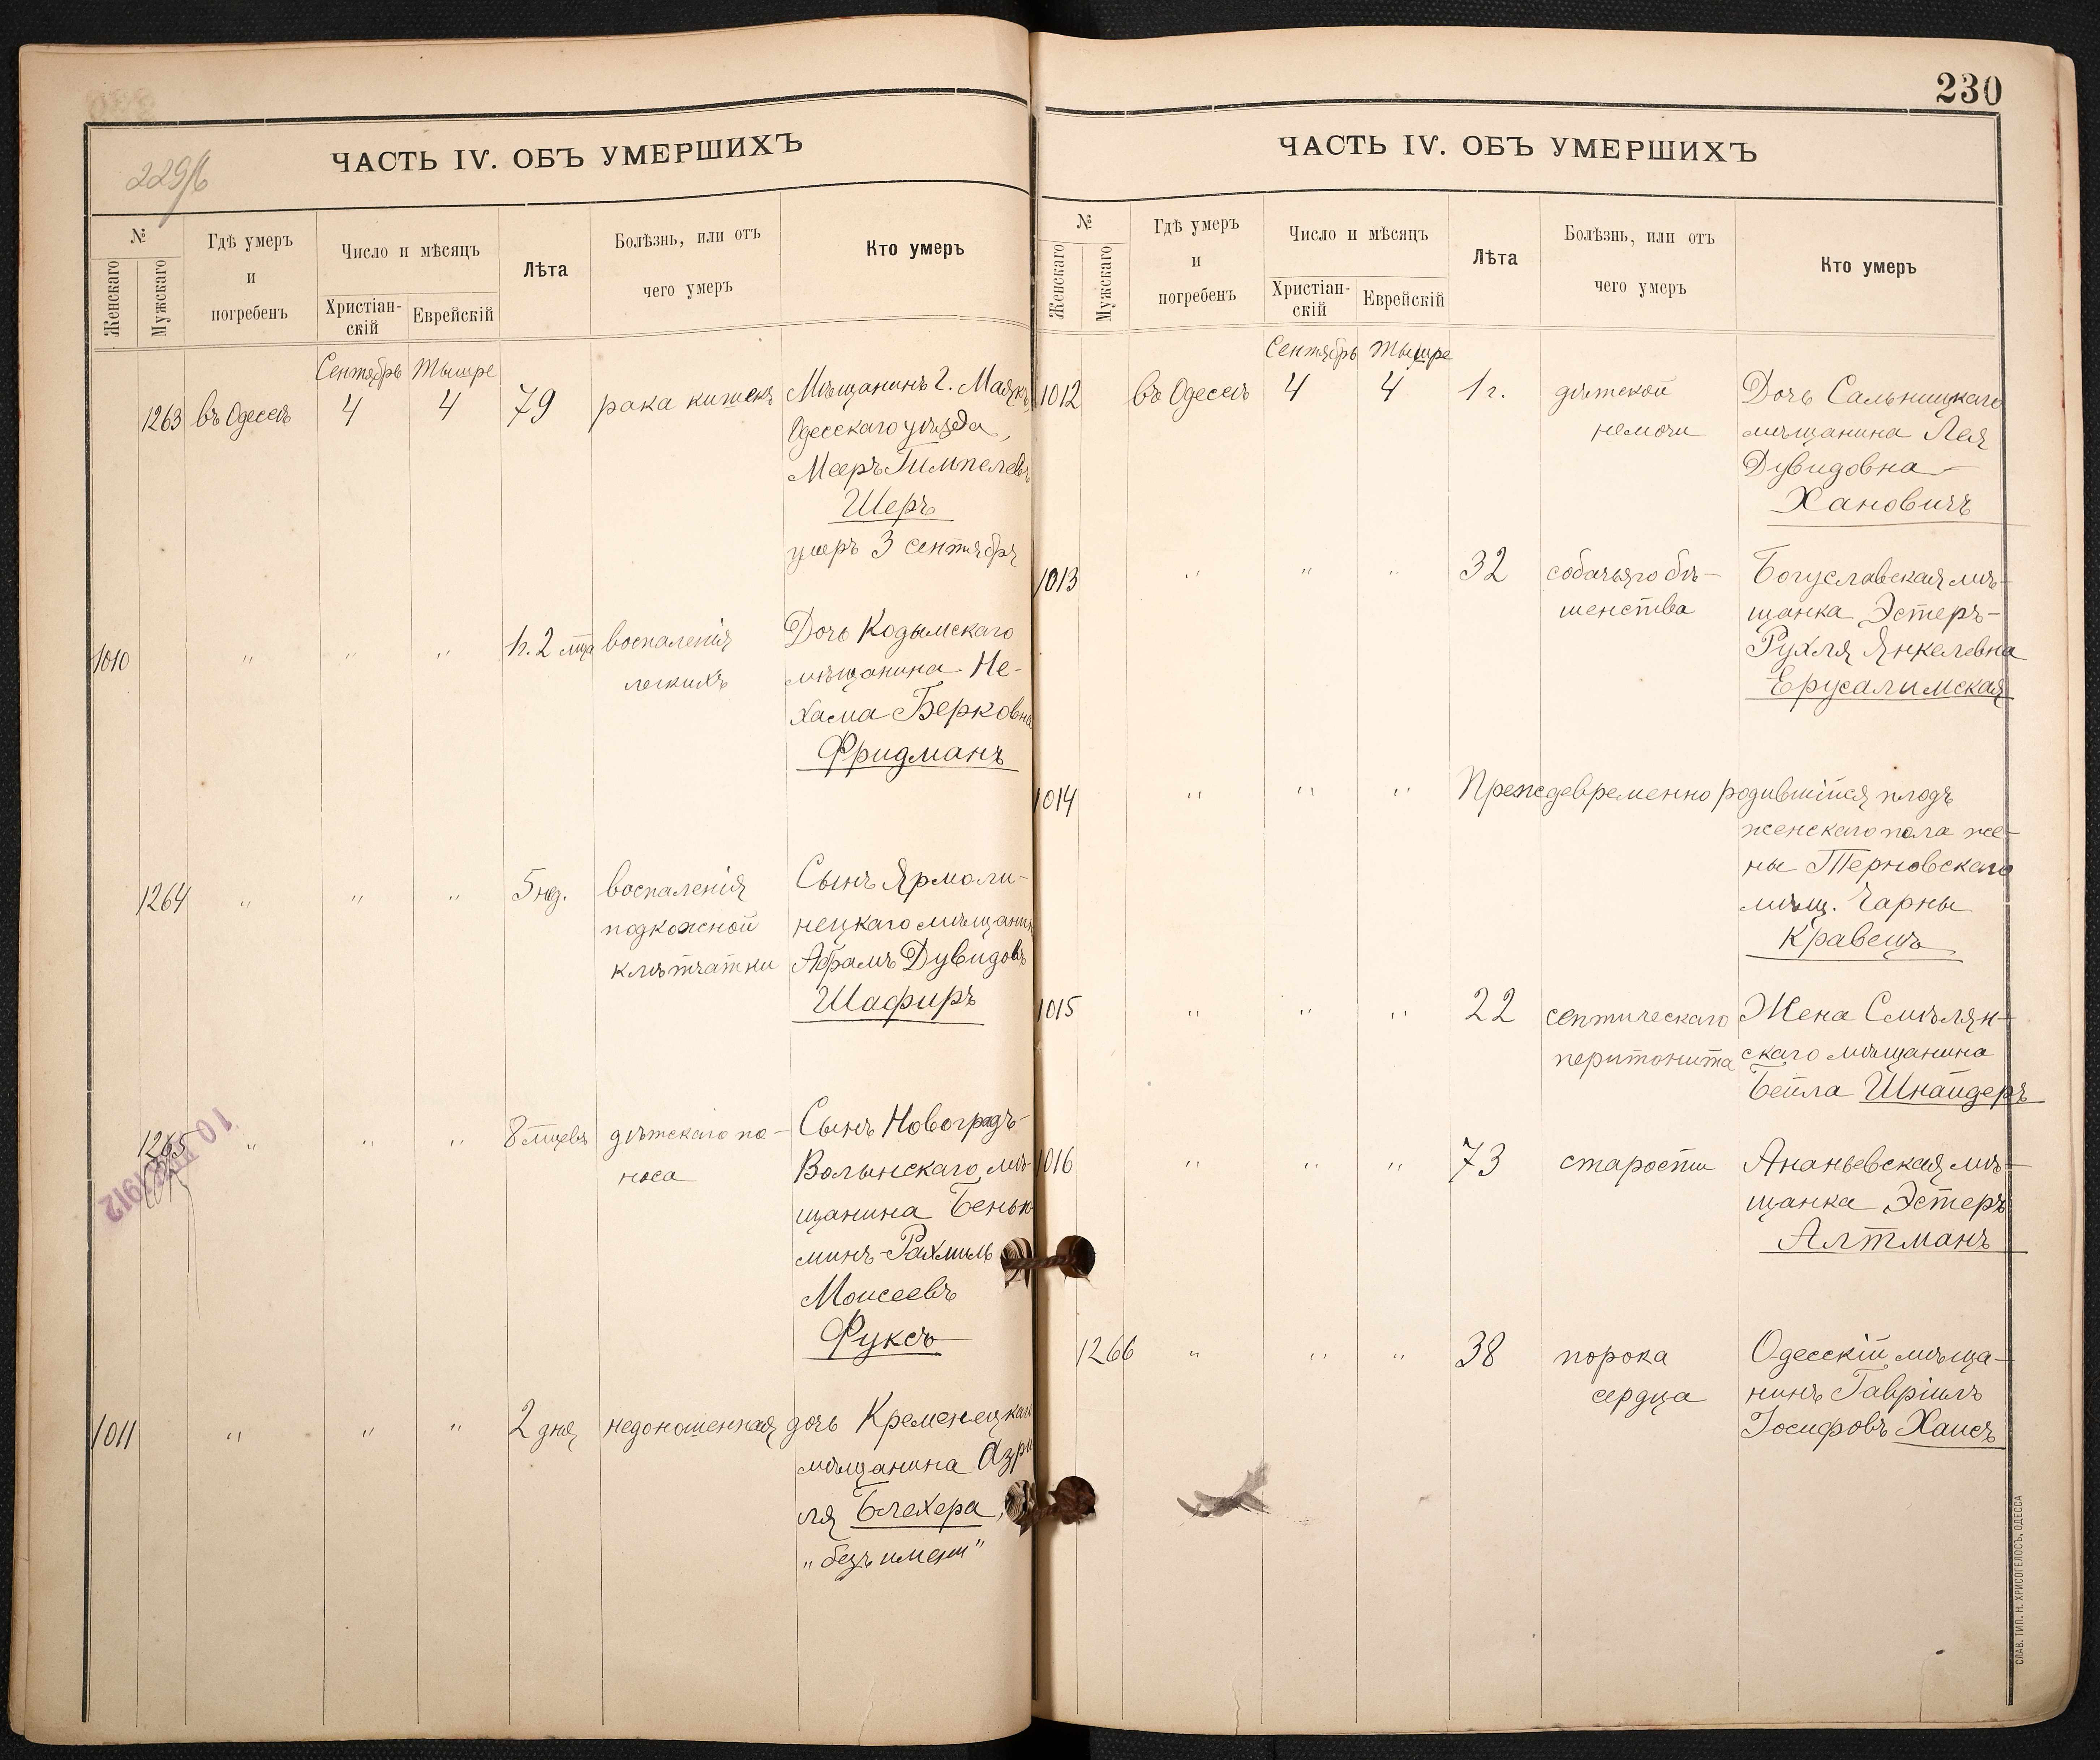 229/б
ЧАСТЬ IV. ОБЪ УМЕРШИХЪ
№
Женскаго
Мужскаго
Гдѣ умеръ
и
погребенъ
Число и мѣсяцъ
Христіан-
скій
Еврейскій
Лѣта
Болѣзнь, или отъ
чего умеръ
Кто умеръ
Сентябрь Тышре
1263 въ Одессѣ 4 4 79 рака кишекъ Мѣщанинъ г. Маякъ
Одесскаго уѣзда,
Мееръ Гимпелевъ
Шеръ
умеръ 3 сентября
1010 " " " 1г. 2 мца воспаленія Дочь Кодымскаго
легкихъ мѣщанина Не-
хама Берковна
Фридманъ
1264 " " " 5 нд. воспаленія Сынъ Ярмоли-
подкожной нецкаго мѣщанина
клѣтчатки Абрамъ Дувидовъ
Шафиръ
1265 " " " 8 мцевъ дѣтскаго по- Сынъ Новоградъ-
носа Волынскаго мѣ-
щанина Бенья-
минъ-Рахмиль
Моисеевъ
Фуксъ
10 1912
1011 " " " 2 дня недоношенная дочь Кременецкаго
мѣщанина Азри-
ля Блехера,
"безъ имени"
230
ЧАСТЬ IV. ОБЪ УМЕРШИХЪ
№
Женскаго
Мужскаго
Гдѣ умеръ
и
погребенъ
Число и мѣсяцъ
Христіан-
скій
Еврейскій
Лѣта
Болѣзнь, или отъ
чего умеръ
Кто умеръ
Сентябрь Тышре
1012 въ Одессѣ 4 4 1 г. дѣтской Дочь Сальницкаго
немочи мѣщанина Лея
Дувидовна
Хановичъ
1013 " " " 32 собачьяго бѣ- Богуславская мѣ-
шенства щанка Эстеръ-
Рухля Янкелевна
Ерусалимская
1014 " " " Преждевременно родившійся плодъ
женскаго пола же-
ны Терновскаго
мѣщ. Чарны
Кравецъ
1015 " " " 22 септическаго Жена Смѣлян-
перитонита скаго мѣщанина
Бейла Шнайдеръ
1016 " " " 73 старости Ананьевская мѣ-
щанка Эстеръ
Алтманъ
1266 " " " 38 порока Одесскій мѣща-
сердца нинъ Гавріилъ
Іосифовъ Хаисъ
СЛАВ. ТИП. Н. ХРИСОГЕЛОСЪ, ОДЕССА